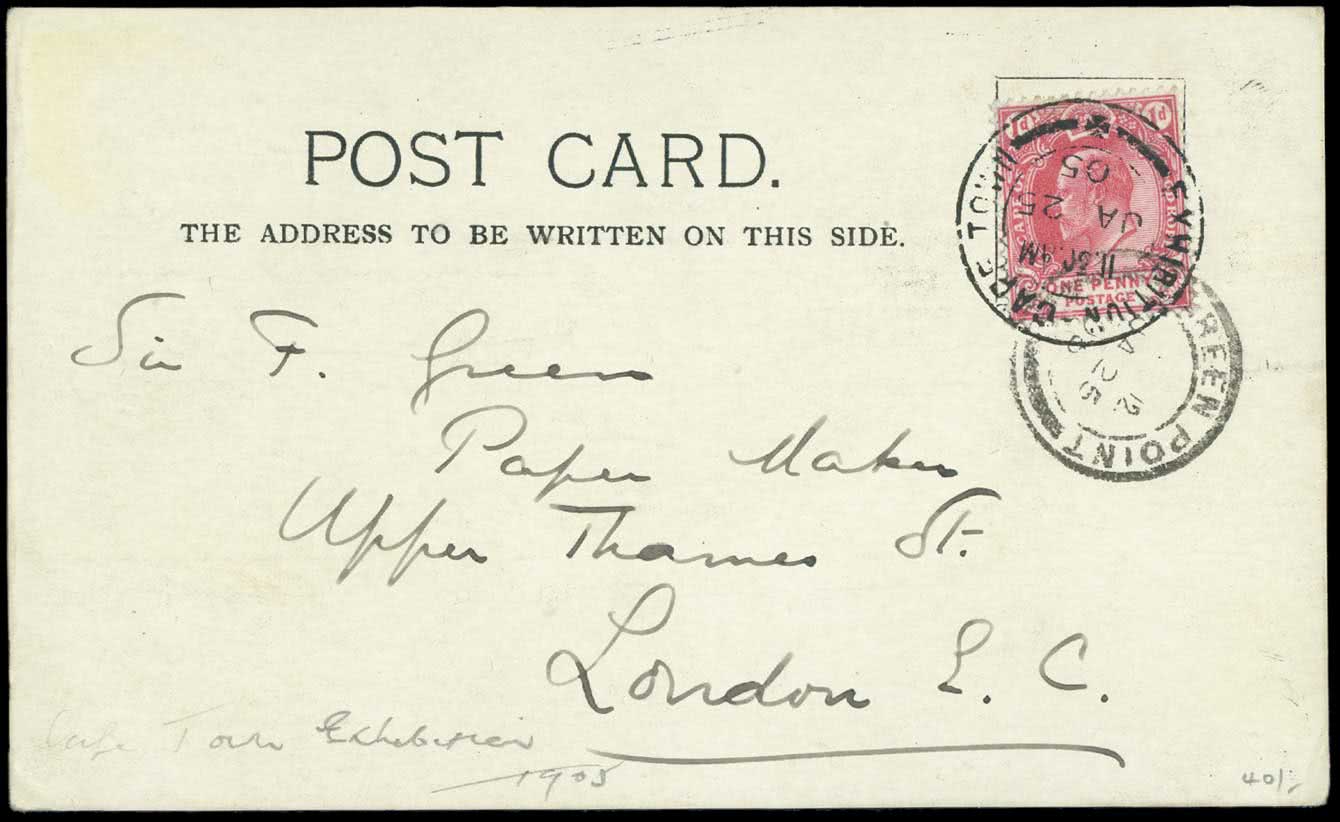 POST CARD.
THE ADDRESS TO BE WRITTEN ON THIS SIDE.
Sir F. Green
Paper Maker
Upper Thames St.
London E. C.
Cape Town Exhibition
1905
40/-
EXHIBITION CAPE TOWN
11.30 AM
JA 25
05
ONE PENNY
POSTAGE
GREEN POINT
JA 25